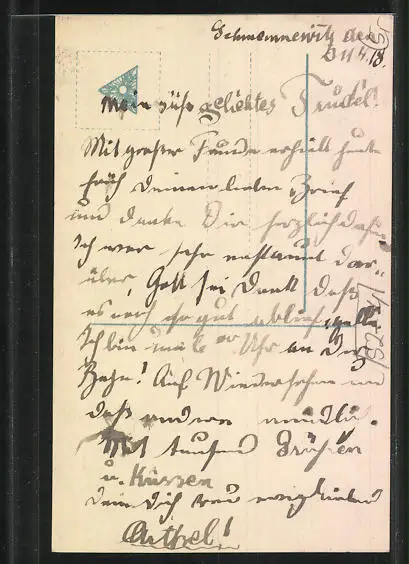 Schmannewitz den
11.4.18.
Mein süß geliebtes Trudel!
Mit großer Freude erhielt heute
früh deinen lieben Brief
und danke Dir herzlich dafür
Ich war sehr erstaunt dar-
über, Gott sei Dank daß
es noch so gut ablief,
Ich bin um 6 Uhr an der
Bahn! Auf Wiedersehen und
das andere mündlich.
Mit tausend Grüßen
u. Küssen
Dein Dich treu ewigliebend
Arthel!